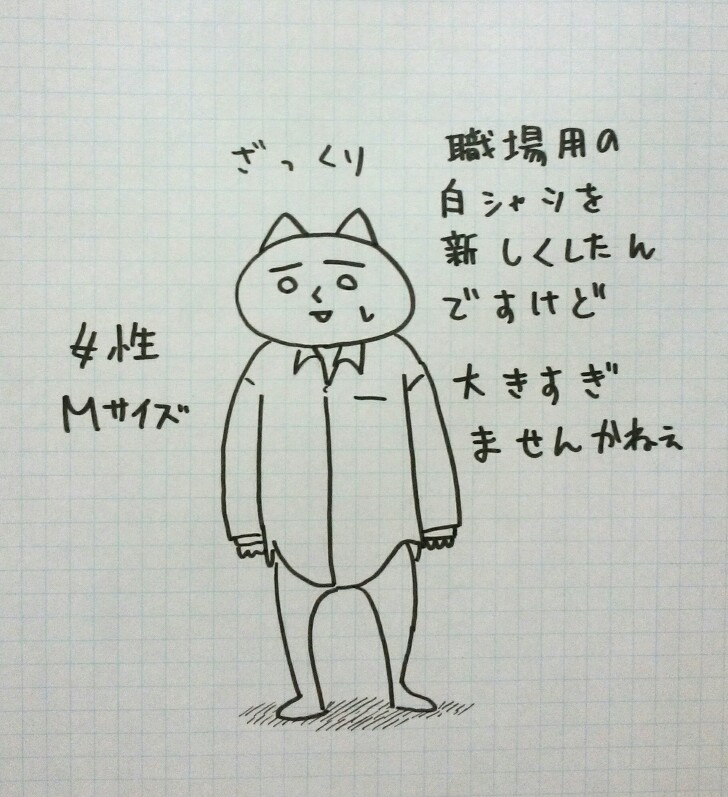 ざっくり
職場用の
白シャツを
新しくしたん
ですけど
大きすぎ
ませんかねぇ
女性
Mサイズ